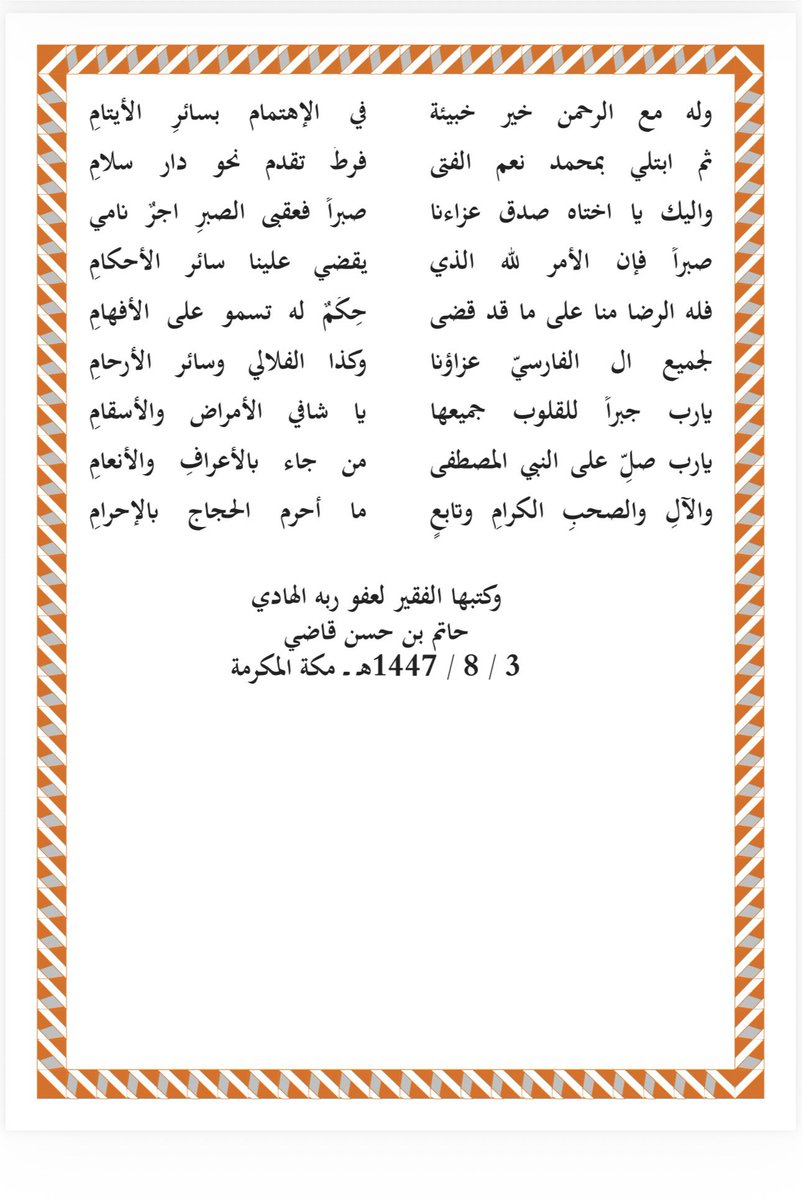 وله مع الرحمن خير خبيئة في الإهتمام بسائرِ الأيتامِ
ثم ابتلي بمحمد نعم الفتى فرطَ تقدم نحو دار سلامِ
واليك يا اختاه صدق عزاءنا صبراً فعقبى الصبرِ اجرٌ نامي
صبراً فإن الأمر لله الذي يقضي علينا سائر الأحكامِ
فله الرضا منا على ما قد قضى حِكَمٌ له تسمو على الأفهامِ
لجميع ال الفارسيّ عزاؤنا وكذا الفلالي وسائر الأرحامِ
يارب جبراً للقلوب جميعها يا شافي الأمراض والأسقامِ
يارب صلِّ على النبي المصطفى من جاء بالأعرافِ والأنعامِ
والآلِ والصحبِ الكرامِ وتابعٍ ما أحرم الحجاج بالإحرامِ
وكتبها الفقير لعفو ربه الهادي
حاتم بن حسن قاضي
3 / 8 / 1447هـ ـ مكة المكرمة